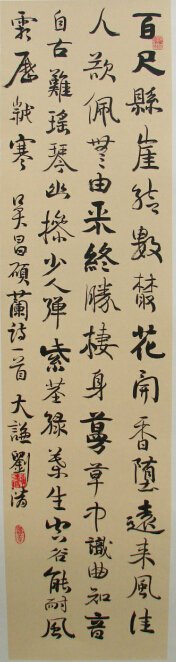 百尺縣崖結數叢花開香墮遠來風佳
人欲佩無由采終勝棲身蔓草中識曲知音
自古難瑤琴幽操少人彈紫莖綠葉生空谷能耐風
霜歷艱寒吴昌碩蘭詩一首大謙劉清